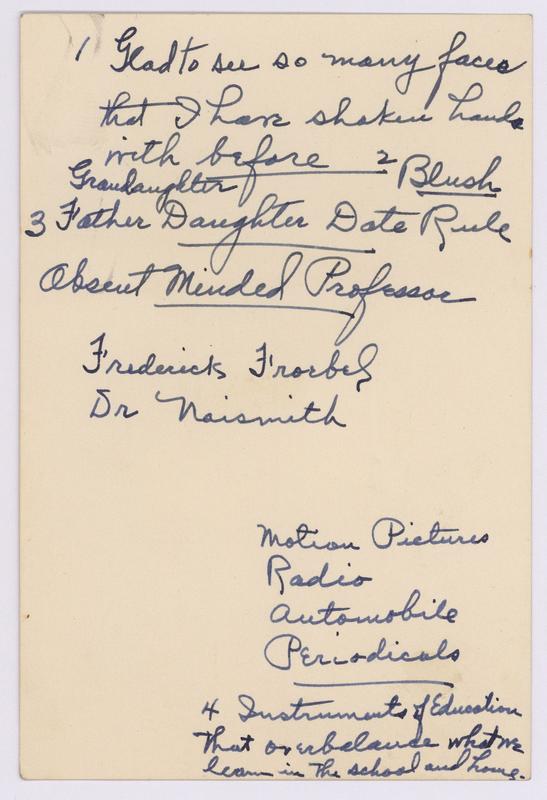 1 Glad to see so many faces
that I have shaken hands
with before 2 Blush
Grandaughter
3 Father Daughter Date Rule
Absent Minded Professor
Frederick Froebel
Dr Naismith
Motion Pictures
Radio
Automobile
Periodicals
4 Instruments of Education
that overbalance what we
learn in the school and home.